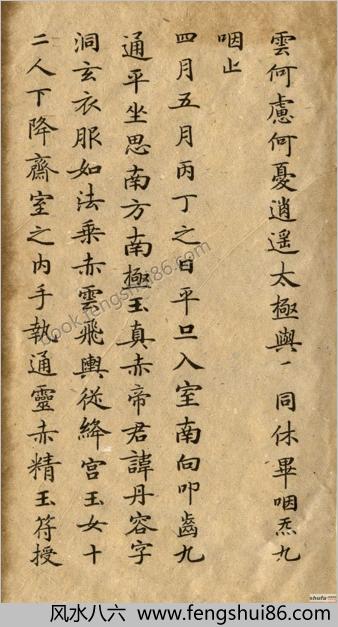 雲何慮何憂逍遥太極與一同休畢咽炁九
咽止
四月五月丙丁之日平旦入室南向叩齒九
通平坐思南方南極玉真赤帝君諱丹容字
洞玄衣服如法乘赤雲飛輿従絳宮玉女十
二人下降齋室之内手執通靈赤精玉符授
book.fengshui86.com
shufa
风水八六 www.fengshui86.com